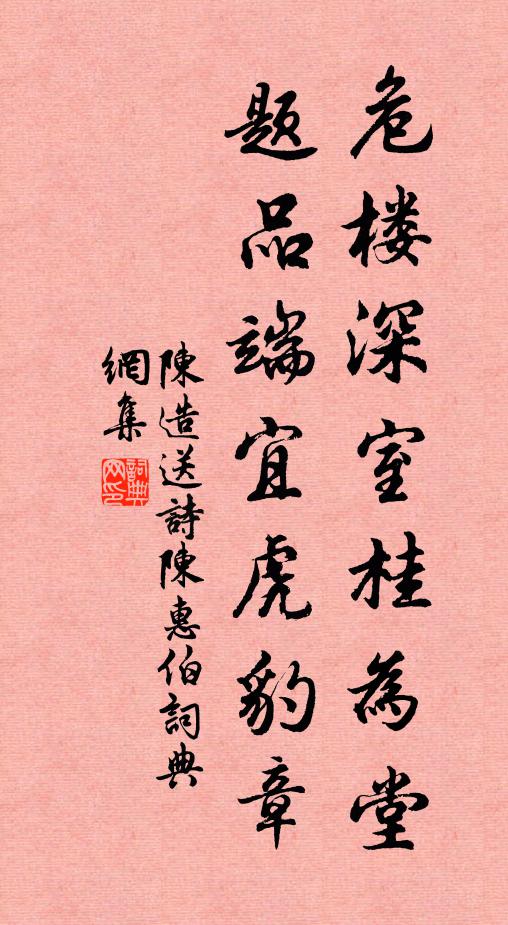 危楼深室桂為堂
题品端宜虎豹章
陳造送詩陳惠伯詞典
網集
詞典网印